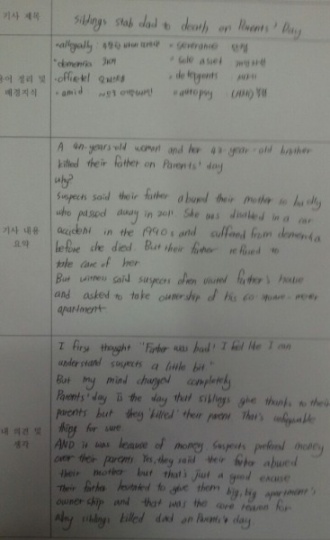 기사 제목
Siblings stab dad to death on Parents' Day
용어 정리 및
배경지식
allegedly
severance
dementia 치매
sole asset
officetel 오피스텔
detergents 세제
amid
autopsy
기사 내용
요약
A 40-years old women and her 43-year-old brother
killed their father on Parents' day
Why?
Suspects said their father abused their mother so badly
who passed away in 2011. She was disabled in a car
accident in the 1990s and suffered from dementia
before she died. But their father refused to
take care of her.
But women said suspects often visited father's house
and asked to take ownership of his square-meter
apartment
내 의견 및
생각
I first thought "Father was bad! I feel like I can
understand suspects a little bit"
But my mind changed completely
Parents' day is the day that siblings give thanks to their
parents but they 'killed' their parent. That's
thing for sure.
AND it was because of money. Suspects prefered money
over their parents. Yes, they said their father abused
their mother but that's just a good excuse
Their father hesitated to give them big, big apartment's
ownership and that was the core reason for
why siblings killed dad on Parent's day